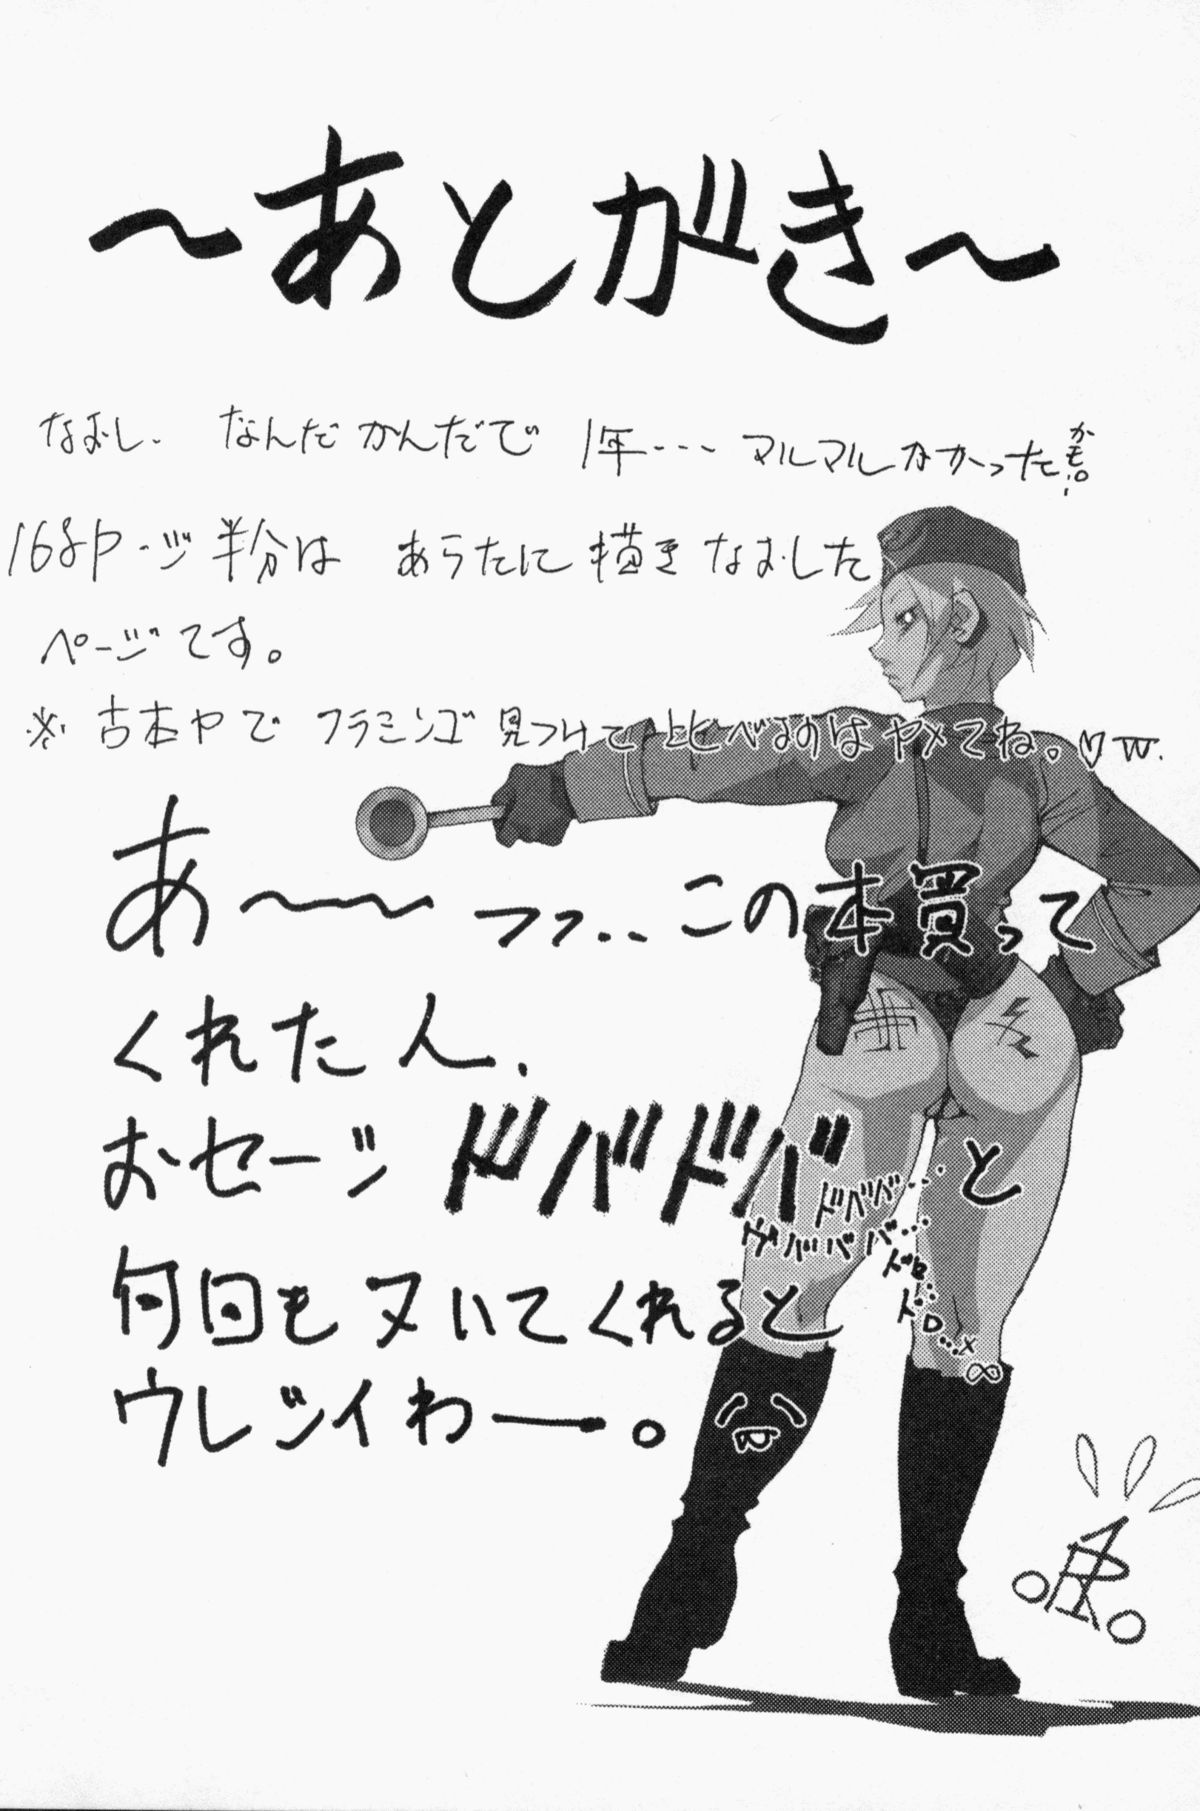 ～あとがき～
なおし. なんだかんだで 1年・・・ マルマルかかったかも。!
168ページ半分は あらたに描きなおした
ページです。
※ 古本ヤで フラミンゴ 見つけて 比べるのは ヤメてね。♡w.
あ～～ っっ.. この本買って
くれた人.
おセージ ドバドバ と
ドバババ・・・
ドバババ・・・
何回もヌいてくれると
ウレシイわー。